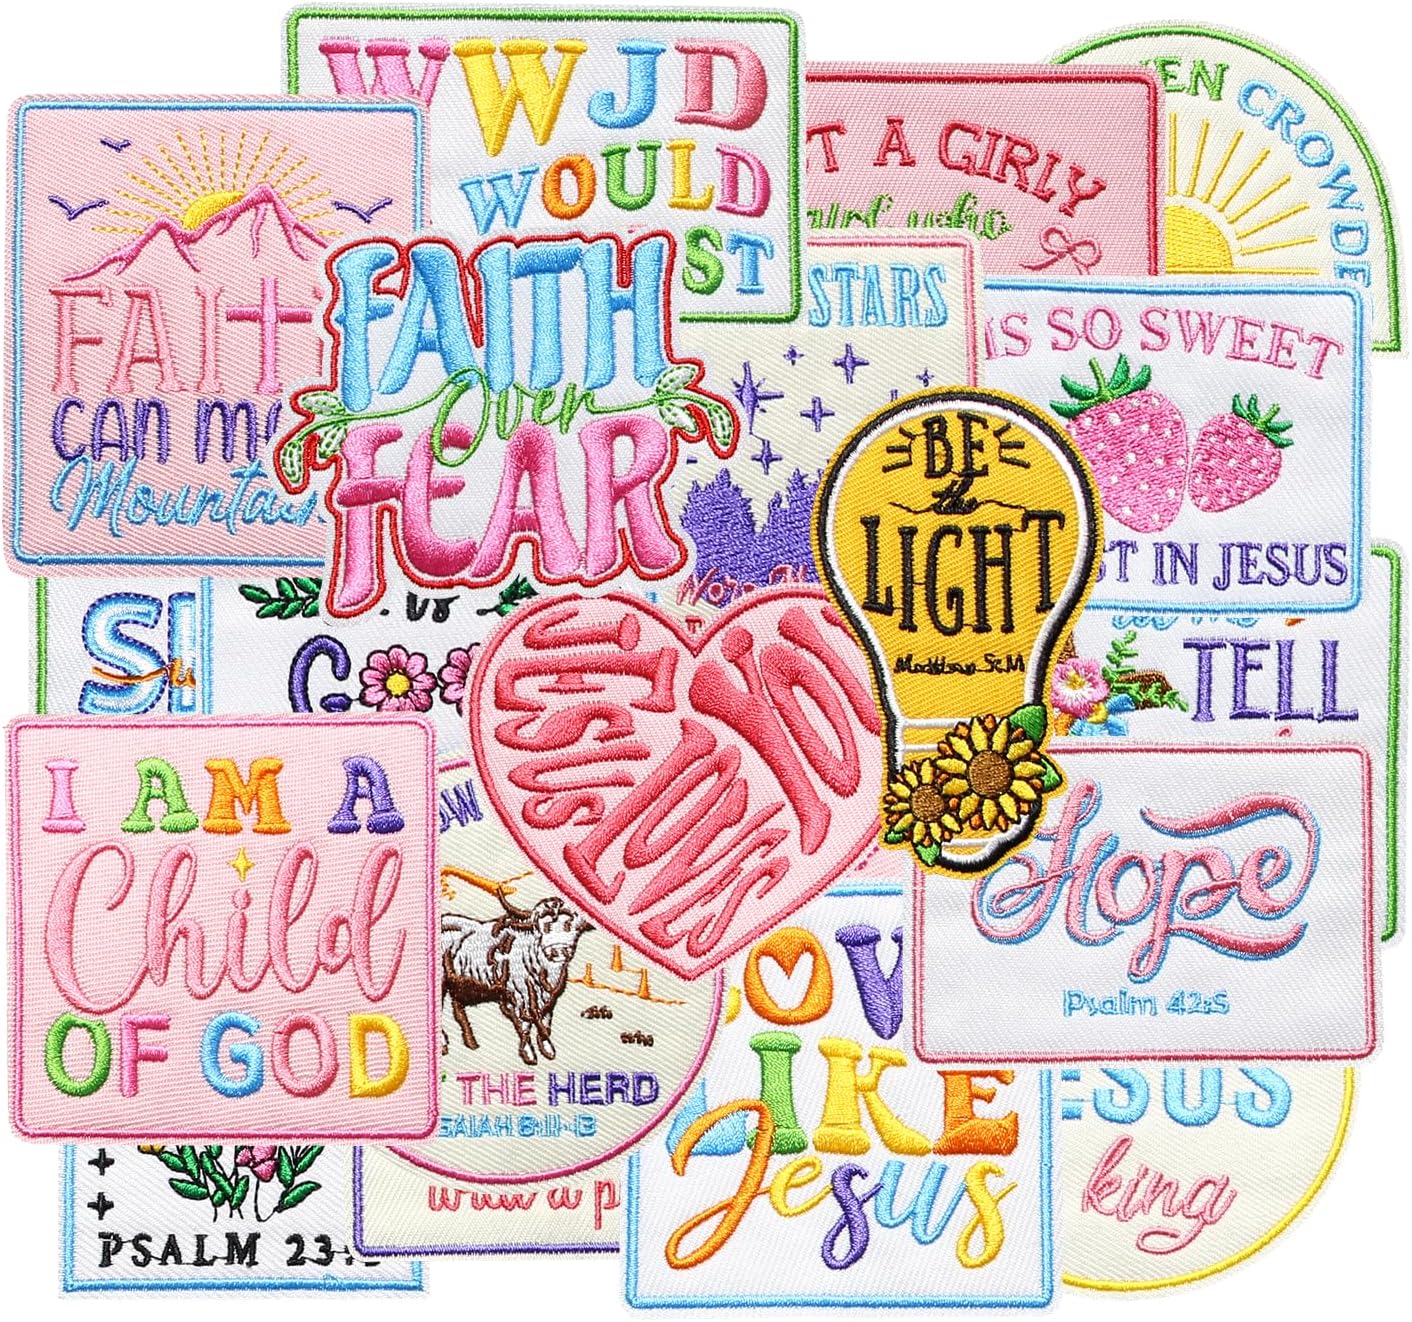 WWJD
WOULD
ST
T A GIRLY
who
EN CROWDE
FAITH
CAN M
Mountain
FAITH
Over
FEAR
STARS
IS SO SWEET
ST IN JESUS
BE
the
LIGHT
Matthew 5:14
us
GOO
JESUS
LOVES
YOU
TELL
I AM A
Child
OF GOD
OW
THE HERD
ISAIAH 8:11-13
Hope
Psalm 42:5
LOVE
LIKE
Jesus
JESUS
king
PSALM 23: